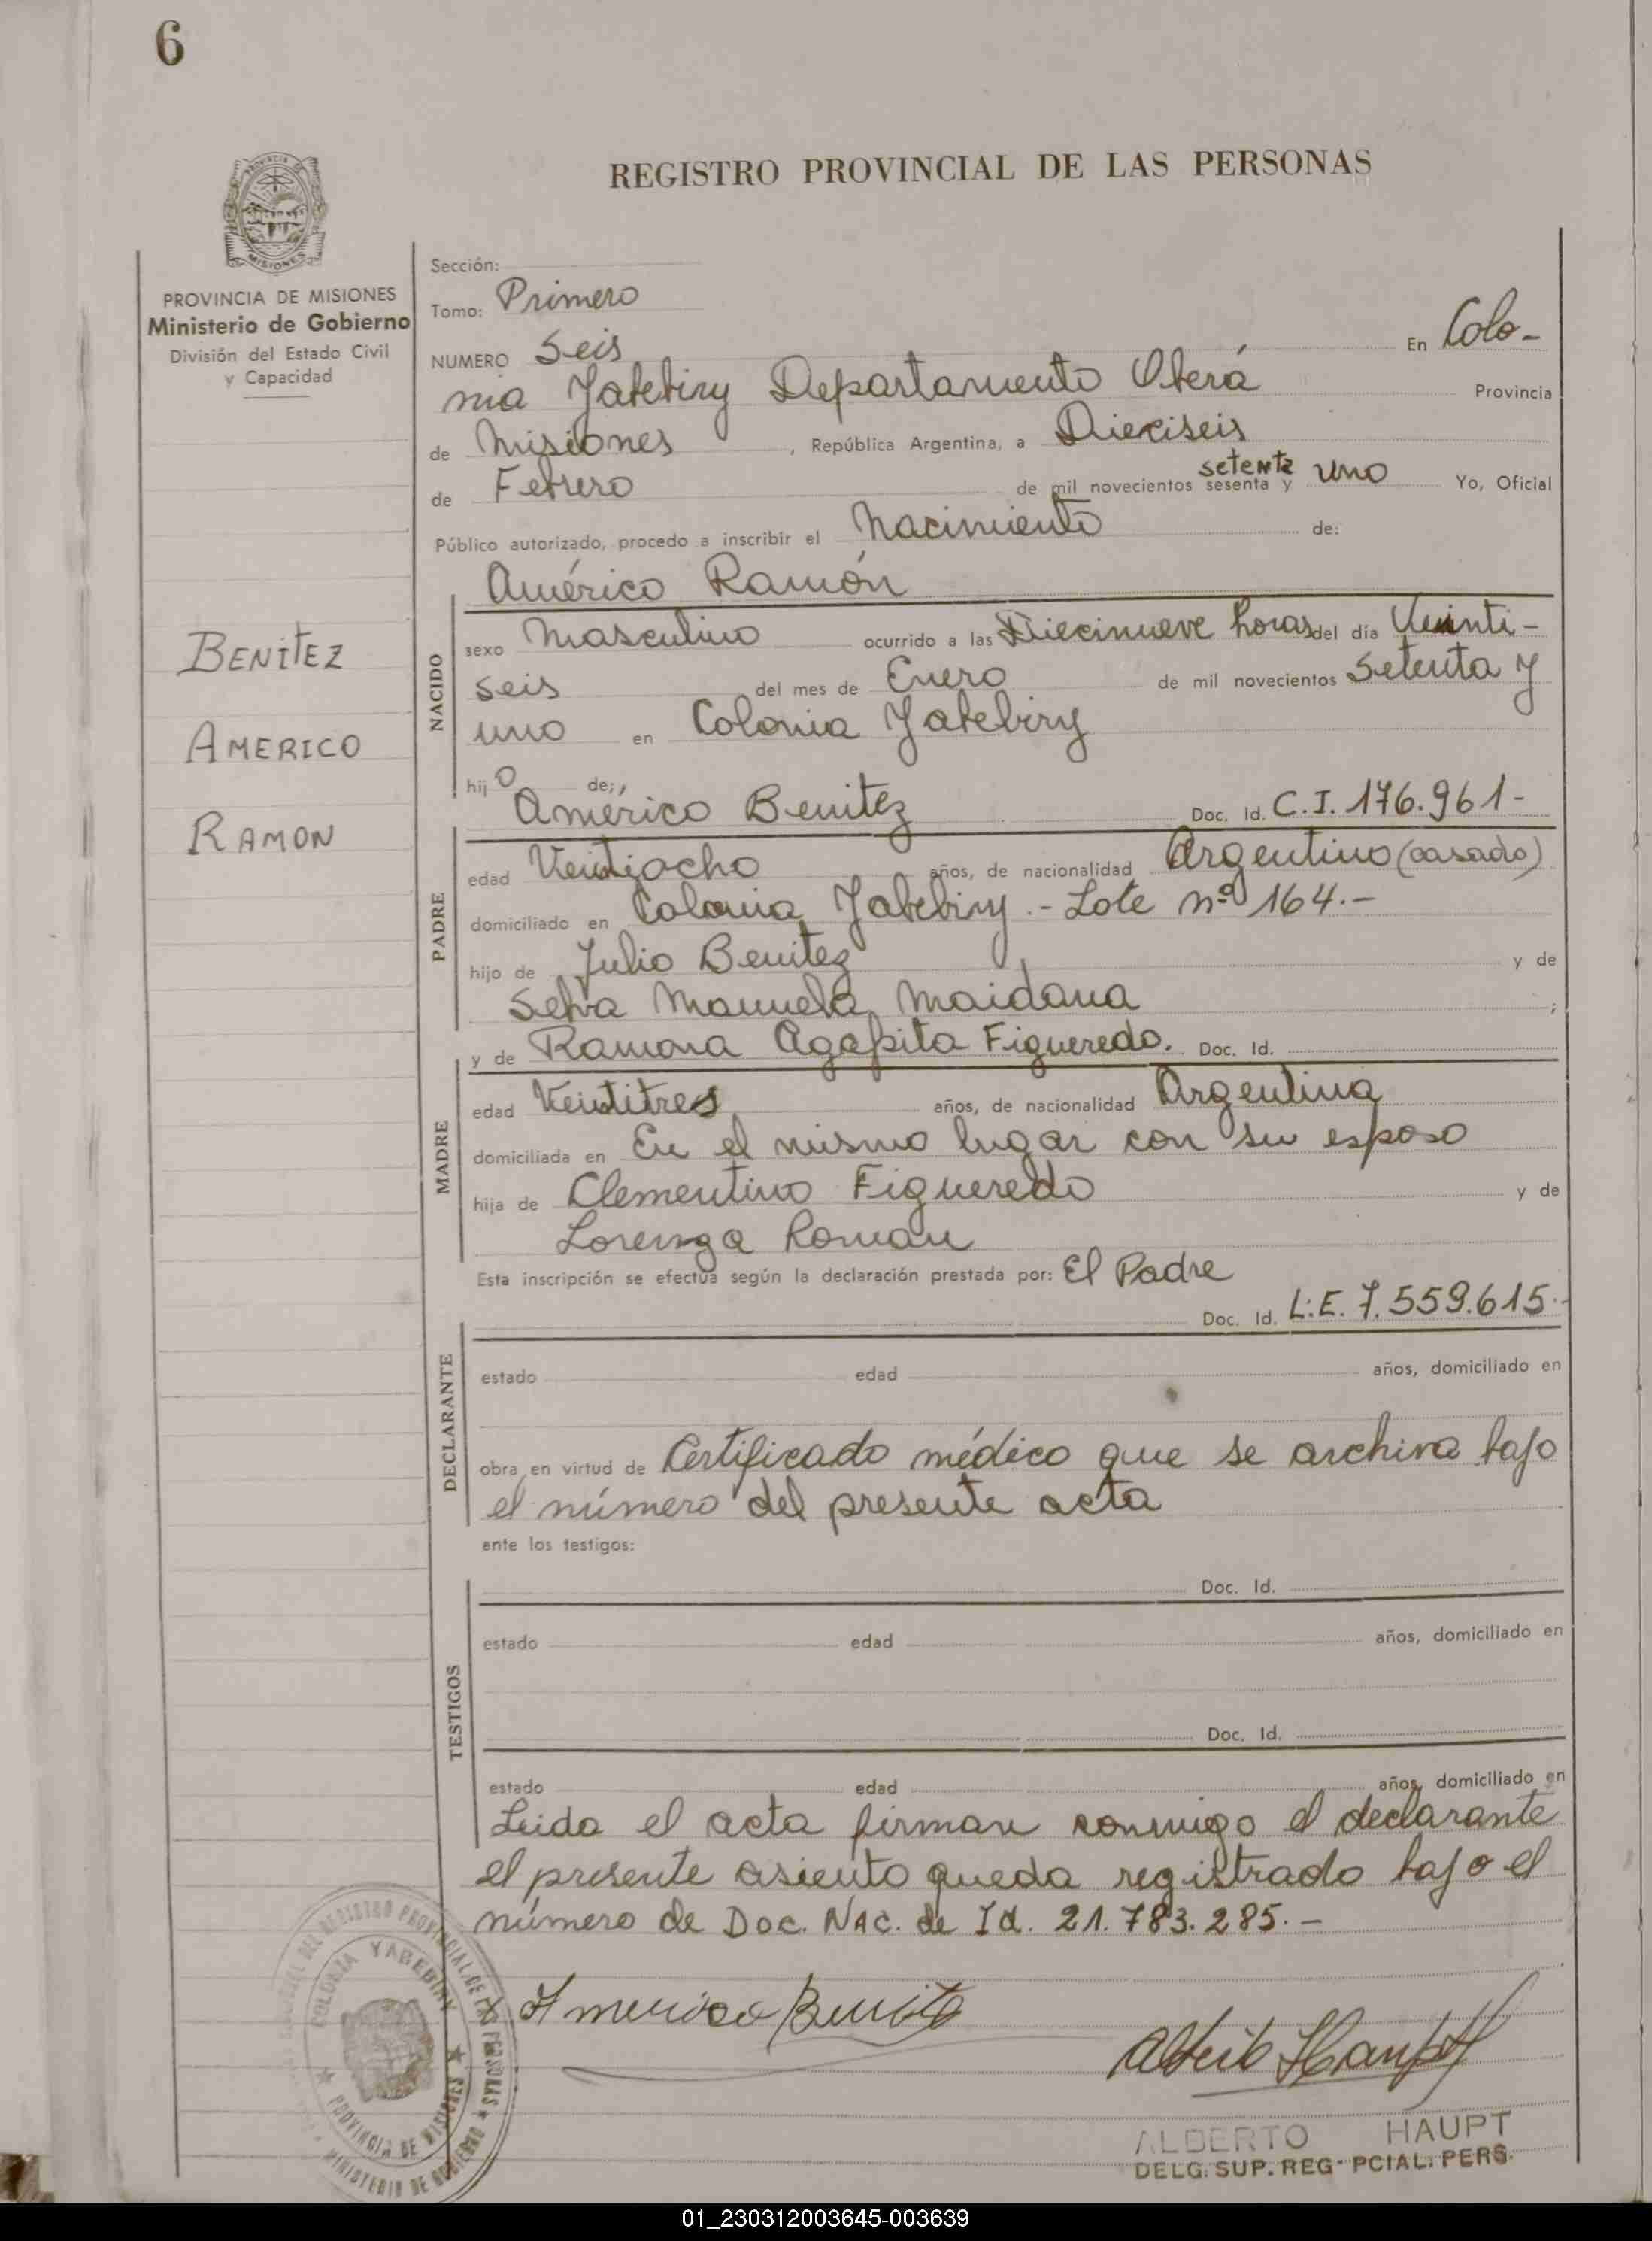 6
MISIONES
REGISTRO PROVINCIAL DE LAS PERSONAS
PROVINCIA DE MISIONES
Ministerio de Gobierno
División del Estado Civil
y Capacidad
BENÍTEZ
AMERICO
RAMON
Sección:
Tomo: Primero
NUMERO Seis En Colo-
nia Yabebiry Departamento Oberá Provincia
de Misiones , República Argentina, a Dieciseis
de Febrero de mil novecientos sesenta y setenta uno Yo, Oficial
Público autorizado, procedo a inscribir el Nacimiento de:
Américo Ramón
NACIDO
sexo Masculino ocurrido a las Diecinueve horas del día Veinti-
seis del mes de Enero de mil novecientos Setenta y
uno en Colonia Yabebiry
hijo de;
Américo Benitez Doc. Id. C.I. 176.961-
PADRE
edad Veintiocho años, de nacionalidad Argentino (casado)
domiciliado en Colonia Yabebiry.- Lote nº 164.-
hijo de Julio Benitez y de
Selva Manuela Maidana ;
y de Ramona Agapita Figueredo. Doc. Id.
MADRE
edad Veintitres años, de nacionalidad Argentina
domiciliada en En el mismo lugar con su esposo
hija de Clementino Figueredo y de
Lorenza Roman
Esta inscripción se efectúa según la declaración prestada por: El Padre
Doc. Id. L.E. 7.559.615.-
DECLARANTE
estado edad años, domiciliado en
obra en virtud de Certificado médico que se archiva bajo
el número del presente acta
ante los testigos:
Doc. Id.
TESTIGOS
estado edad años, domiciliado en
Doc. Id.
estado edad años, domiciliado en
Leida el acta firman conmigo el declarante
el presente asiento queda registrado bajo el
número de Doc. Nac. de Id. 21.783.285.-
X Americo Benite
Alberto Haupt
ALBERTO HAUPT
DELG. SUP. REG- PCIAL. PERS.
DEL REGISTRO PROVINCIAL DE LAS PERSONAS
COLONIA YABEBIRY
PROVINCIA DE MISIONES
MINISTERIO DE GOBIERNO
01_230312003645-003639